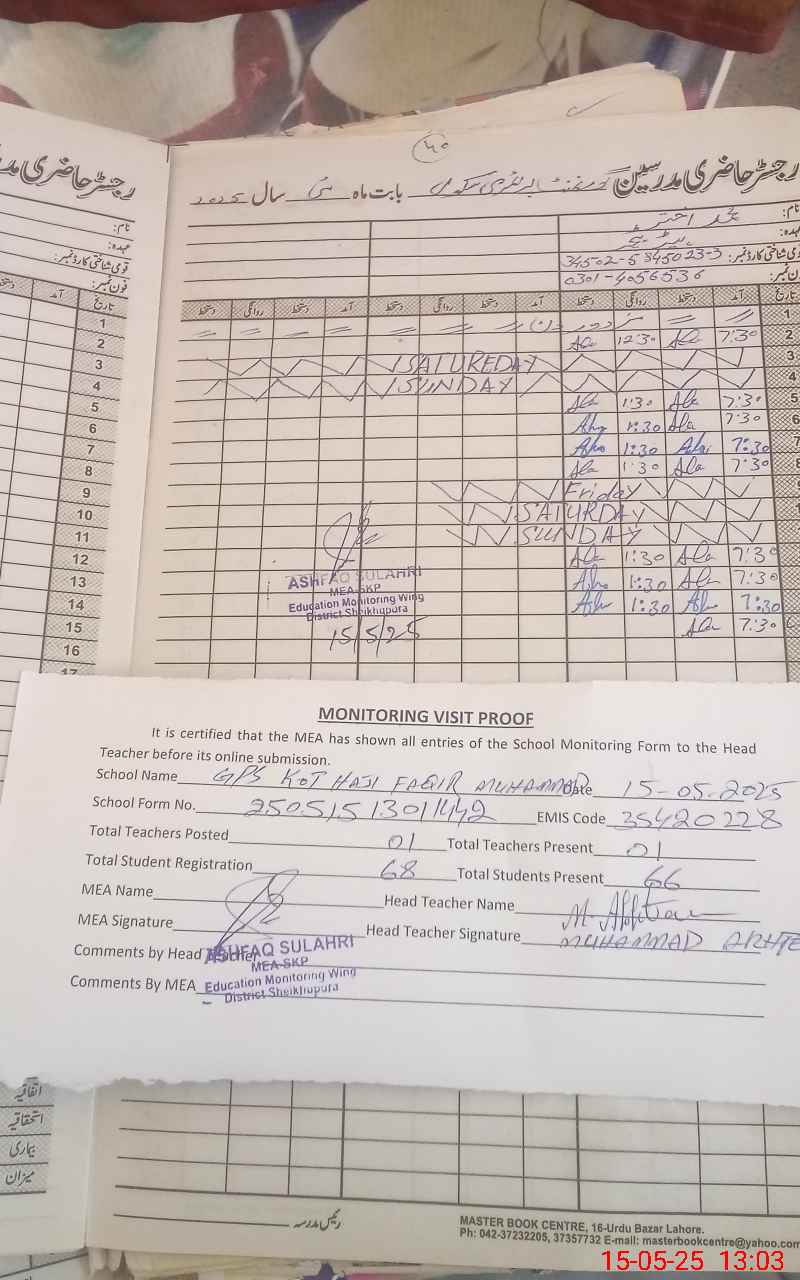 رجسٹر حاضری مدرسین گورنمنٹ پرائمری سکول بابت ماہ مئی سال 2025
نام: محمد اختر
عہدہ:
قومی شناختی کارڈ نمبر: 34502-5845023-3
فون نمبر: 0301-4056536
تاریخ آمد دستخط روانگی دستخط آمد دستخط روانگی دستخط آمد دستخط روانگی دستخط
1
2 7:30 Ala 12:30 Ala
3 SATUREDAY
4 SUNDAY
5 7:30 Ala 1:30 Ala
6 7:30 Ala 1:30
7 7:30 1:30
8 7:30 Ala 1:30 Ala
9 Friday
10 SATURDAY
11 SUNDAY
12 7:30 Ala 1:30 Ala
13 7:30 Ala 1:30
14 7:30 1:30
15 7:30 Ala
16
17
ASHFAQ SULAHRI
MEA-SKP
Education Monitoring Wing
District Sheikhupura
15/5/25
MONITORING VISIT PROOF
It is certified that the MEA has shown all entries of the School Monitoring Form to the Head
Teacher before its online submission.
School Name GPS KOT HAJI FAQIR MUHAMMAD Date 15-05-2025
School Form No. 2505151301442 EMIS Code 35420228
Total Teachers Posted 01 Total Teachers Present 01
Total Student Registration 68 Total Students Present 66
MEA Name Head Teacher Name
MEA Signature Head Teacher Signature MUHAMMAD AKHTE
Comments by Head Teacher
ASHFAQ SULAHRI
MEA-SKP
Comments By MEA
Education Monitoring Wing
District Sheikhupura
اتفاقیہ
استحقاقیہ
بیماری
میزان
رئیس مدرسہ
MASTER BOOK CENTRE, 16-Urdu Bazar Lahore.
Ph: 042-37232205, 37357732 E-mail: masterbookcentre@yahoo.com
15-05-25 13:03